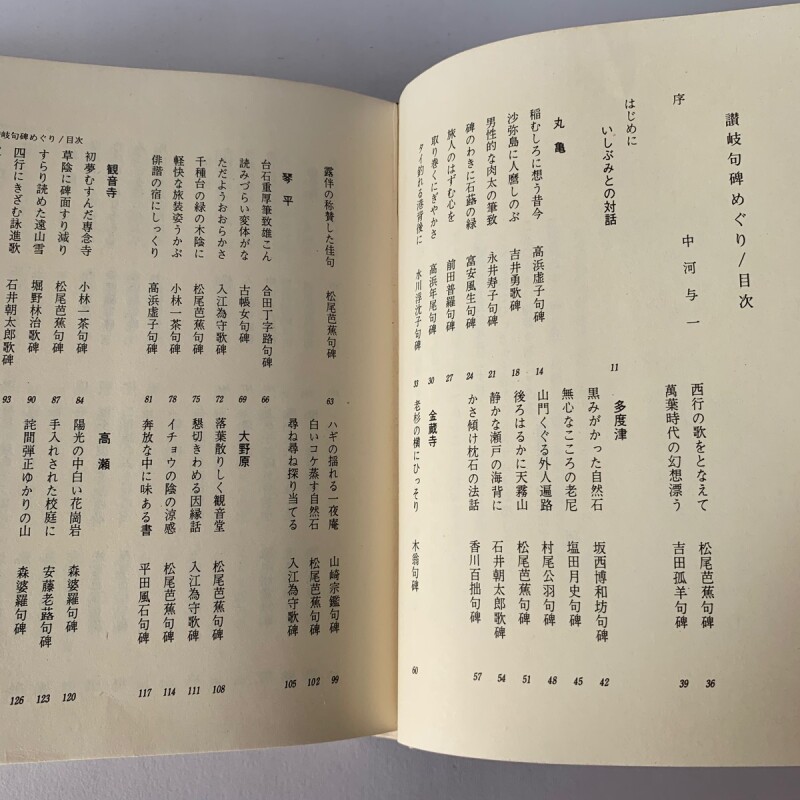 讃岐句碑めぐり/目次
序　中河与一
はじめに
いしぶみとの対話　11
丸亀
稲むしろに想う昔今　高浜虚子句碑　14
沙弥島に人麿しのぶ　吉井勇歌碑　18
男性的な肉太の筆致　永井寿子句碑　21
碑のわきに石蕗の緑　富安風生句碑　24
旅人のはずむ心を　前田普羅句碑　27
取り巻くにぎやかさ　高浜年尾句碑　30
タイ釣れる港背後に　水川浮沈子句碑　33
西行の歌をとなえて　松尾芭蕉句碑　36
萬葉時代の幻想漂う　吉田孤羊句碑　39
多度津
黒みがかった自然石　坂西博和坊句碑　42
無心なこころの老尼　塩田月史句碑　45
山門くぐる外人遍路　村尾公羽句碑　48
後ろはるかに天霧山　松尾芭蕉句碑　51
静かな瀬戸の海背に　石井朝太郎歌碑　54
かさ傾け枕石の法話　香川百拙句碑　57
金蔵寺
老杉の横にひっそり　木翁句碑　60
岐句碑めぐり/目次
露伴の称賛した佳句　松尾芭蕉句碑　63
琴平
台石重厚筆致雄こん　合田丁字路句碑　66
読みづらい変体がな　古帳女句碑　69
ただようおおらかさ　入江為守歌碑　72
千種台の緑の木陰に　松尾芭蕉句碑　75
軽快な旅装姿うかぶ　小林一茶句碑　78
俳諧の宿にしっくり　高浜虚子句碑　81
観音寺
初夢むすんだ専念寺　小林一茶句碑　84
草陰に碑面すり減り　松尾芭蕉句碑　87
すらり読めた遠山雪　堀野林治歌碑　90
四行にきざむ詠進歌　石井朝太郎歌碑　93
ハギの揺れる一夜庵　山崎宗鑑句碑　99
白いコケ蒸す自然石　松尾芭蕉句碑　102
尋ね尋ね探り当てる　入江為守歌碑　105
大野原
落葉散りしく観音堂　松尾芭蕉句碑　108
懇切きわめる因縁話　入江為守歌碑　111
イチョウの陰の涼感　松尾芭蕉句碑　114
奔放な中に味ある書　平田風石句碑　117
高瀬
陽光の中白い花崗岩　森婆羅句碑　120
手入れされた校庭に　安藤老蕗句碑　123
詫間弾正ゆかりの山　森婆羅句碑　126